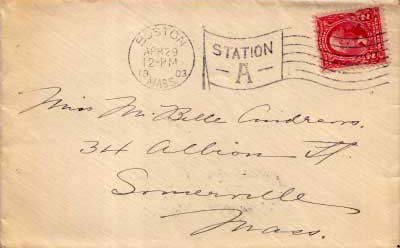 BOSTON
APR 29
12-PM
1903
MASS.
STATION
A
Miss M. Belle Andrews.
34 Albion St.
Somerville
Mass.